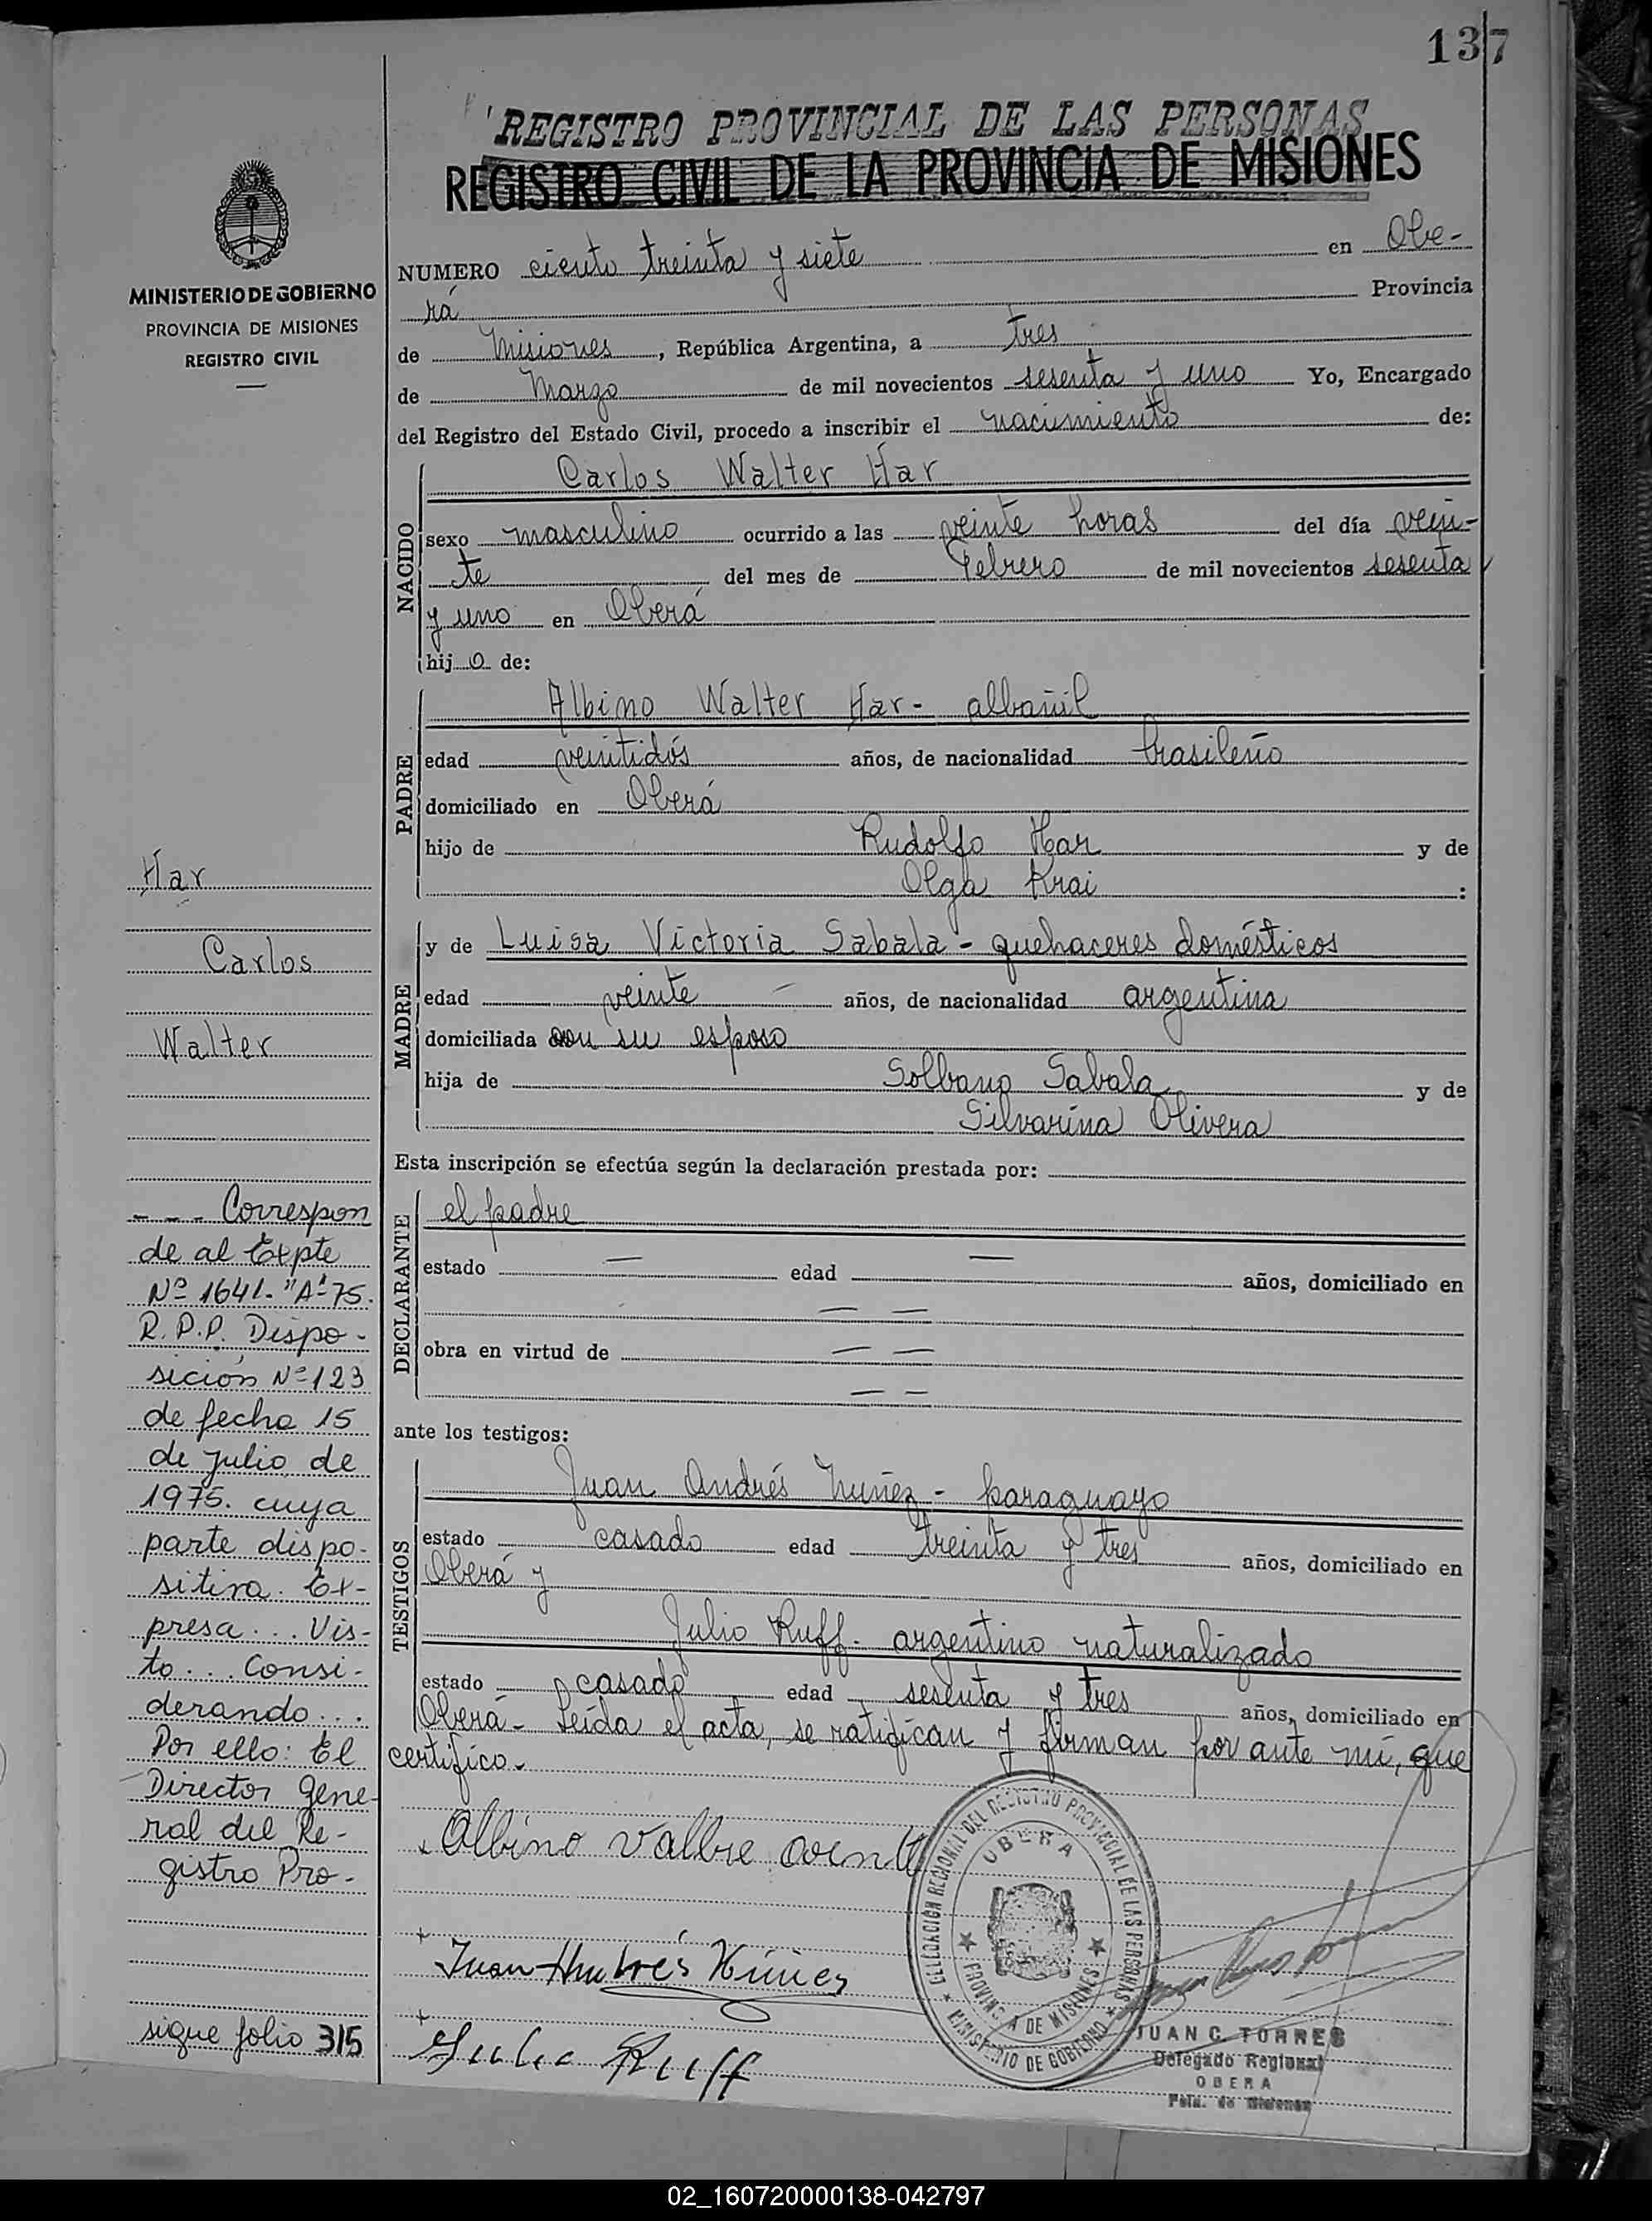 137
REGISTRO PROVINCIAL DE LAS PERSONAS
REGISTRO CIVIL DE LA PROVINCIA DE MISIONES
MINISTERIO DE GOBIERNO
PROVINCIA DE MISIONES
REGISTRO CIVIL
NUMERO ciento treinta y siete en Obe-
rá Provincia
de Misiones, República Argentina, a tres
de Marzo de mil novecientos sesenta y uno Yo, Encargado
del Registro del Estado Civil, procedo a inscribir el nacimiento de:
NACIDO
Carlos Walter Har
sexo masculino ocurrido a las veinte horas del día vein-
te del mes de Febrero de mil novecientos sesenta
y uno en Oberá
hijo de:
PADRE
Albino Walter Har - albañil
edad veintidós años, de nacionalidad brasileño
domiciliado en Oberá
hijo de Rudolfo Har y de
Olga Krai :
MADRE
y de Luisa Victoria Sabala - quehaceres domésticos
edad veinte años, de nacionalidad argentina
domiciliada con su esposo
hija de Solbano Sabala y de
Silvarina Olivera
Esta inscripción se efectúa según la declaración prestada por:
DECLARANTE
el padre
estado — edad — años, domiciliado en
— —
obra en virtud de — —
— —
ante los testigos:
TESTIGOS
Juan Andrés Nuñez - paraguayo
estado casado edad treinta y tres años, domiciliado en
Oberá y
Julio Ruff - argentino naturalizado
estado casado edad sesenta y tres años, domiciliado en
Oberá - Leída el acta, se ratifican y firman por ante mí, que
certifico.
Albino
Juan Andrés Núñez
Julio Ruff
DELEGACIÓN REGIONAL DEL REGISTRO PROVINCIAL DE LAS PERSONAS
OBERA
PROVINCIA DE MISIONES
MINISTERIO DE GOBIERNO
JUAN C. TORRES
Delegado Regional
OBERA
Pcia. de Misiones
Har
Carlos
Walter
- - - Correspon
de al Expte
Nº 1641- "A"-75.
R.P.P. Dispo-
sición Nº 123
de fecha 15
de Julio de
1975. cuya
parte dispo-
sitiva. Ex-
presa... Vis-
to... Consi-
derando...
Por ello: El
Director Gene-
ral del Re-
gistro Pro-
sigue folio 315
02_160720000138-042797